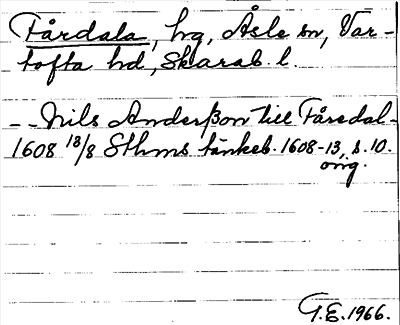 Fårdala, hg, Åsle sn, Var-
tofta hd, Skarab. l.
- - Nils Anderßon till Fåredal -
1608 18/8 Sthms tänkeb. 1608-13, s. 10.
orig.
G.E. 1966.